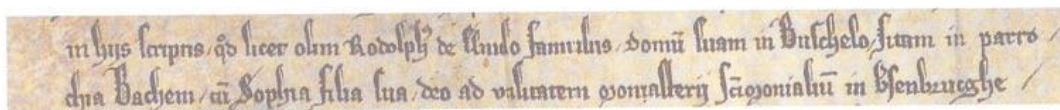 in hijs scriptis, qd licet olim Rodolph9 de Elmlo famulus, domū suam in Buschelo, sitam in parro
chia Bachem, cū Sophia filia sua, deo ad vtilitatem monasterij scīmonialiū in Bsenbrueghe